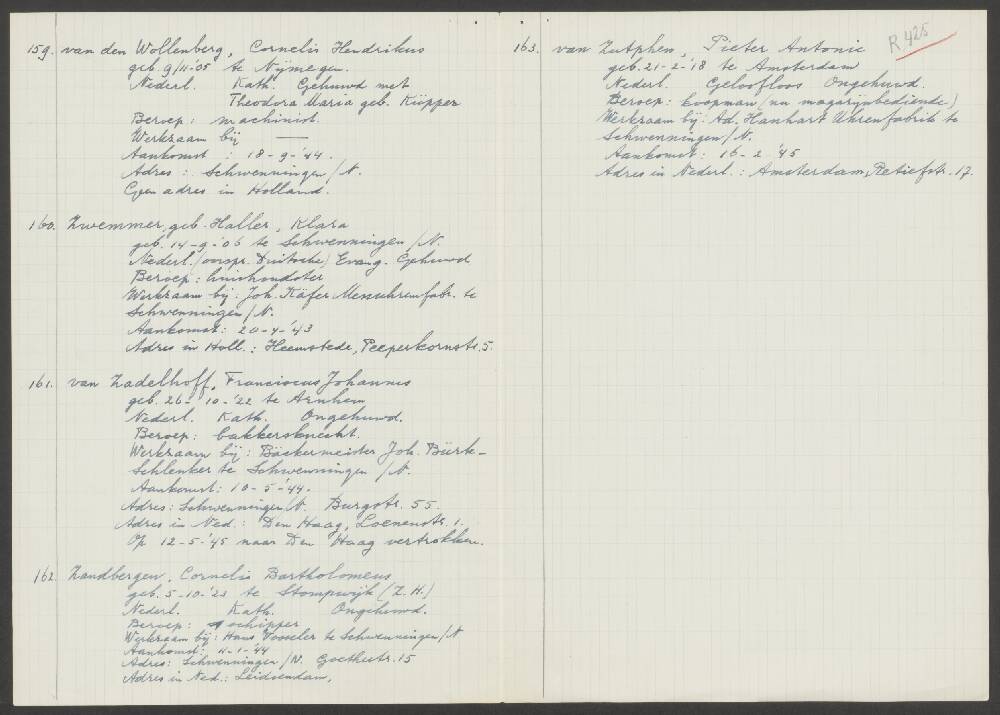 159. van den Wollenberg, Cornelis Hendrikus
geb. 9/11-'05 te Nijmegen.
Nederl. Kath. Gehuwd met
Theodora Maria geb. Küpper
Beroep: machinist.
Werkzaam bij —
Aankomst : 18-9-'44.
Adres: Schwenningen/N.
Geen adres in Holland.
160. Zwemmer, geb. Haller, Klara
geb. 14-9-'06 te Schwenningen/N.
Nederl. (oorspr. Duitsche) Evang. Gehuwd
Beroep: huishoudster
Werkzaam bij: Joh. Käfer Messuhrenfabr. te
Schwenningen/N.
Aankomst: 20-4-'43
Adres in Holl.: Heemstede, Peeperkornstr. 5.
161. van Zadelhoff, Franciscus Johannes
geb. 26-10-'22 te Arnhem
Nederl. Kath. Ongehuwd.
Beroep: bakkersknecht.
Werkzaam bij: Bäckermeister Joh. Bürk-
Schlenker te Schwenningen/N.
Aankomst: 10-5-'44.
Adres: Schwenningen/N. Burgstr. 55.
Adres in Ned.: Den Haag, Loenenstr. 1.
Op 12-5-'45 naar Den Haag vertrokken.
162. Zandbergen, Cornelis Bartholomeus
geb. 5-10-'23 te Stompwijk (Z.H.)
Nederl. Kath. Ongehuwd.
Beroep: schipper
Werkzaam bij: Hans Vosseler te Schwenningen/N
Aankomst: 11-1-'44
Adres: Schwenningen/N. Goethestr. 15
Adres in Ned.: Leidsendam.
R.425
163. van Zutphen, Pieter Antonie
geb. 21-2-'18 te Amsterdam
Nederl. Geloofloos Ongehuwd.
Beroep: koopman (nu magazijnbediende)
Werkzaam bij: Ad. Hanhart Uhrenfabrik te
Schwenningen/N.
Aankomst: 16-2-'45
Adres in Nederl.: Amsterdam, Retiefstr. 17.